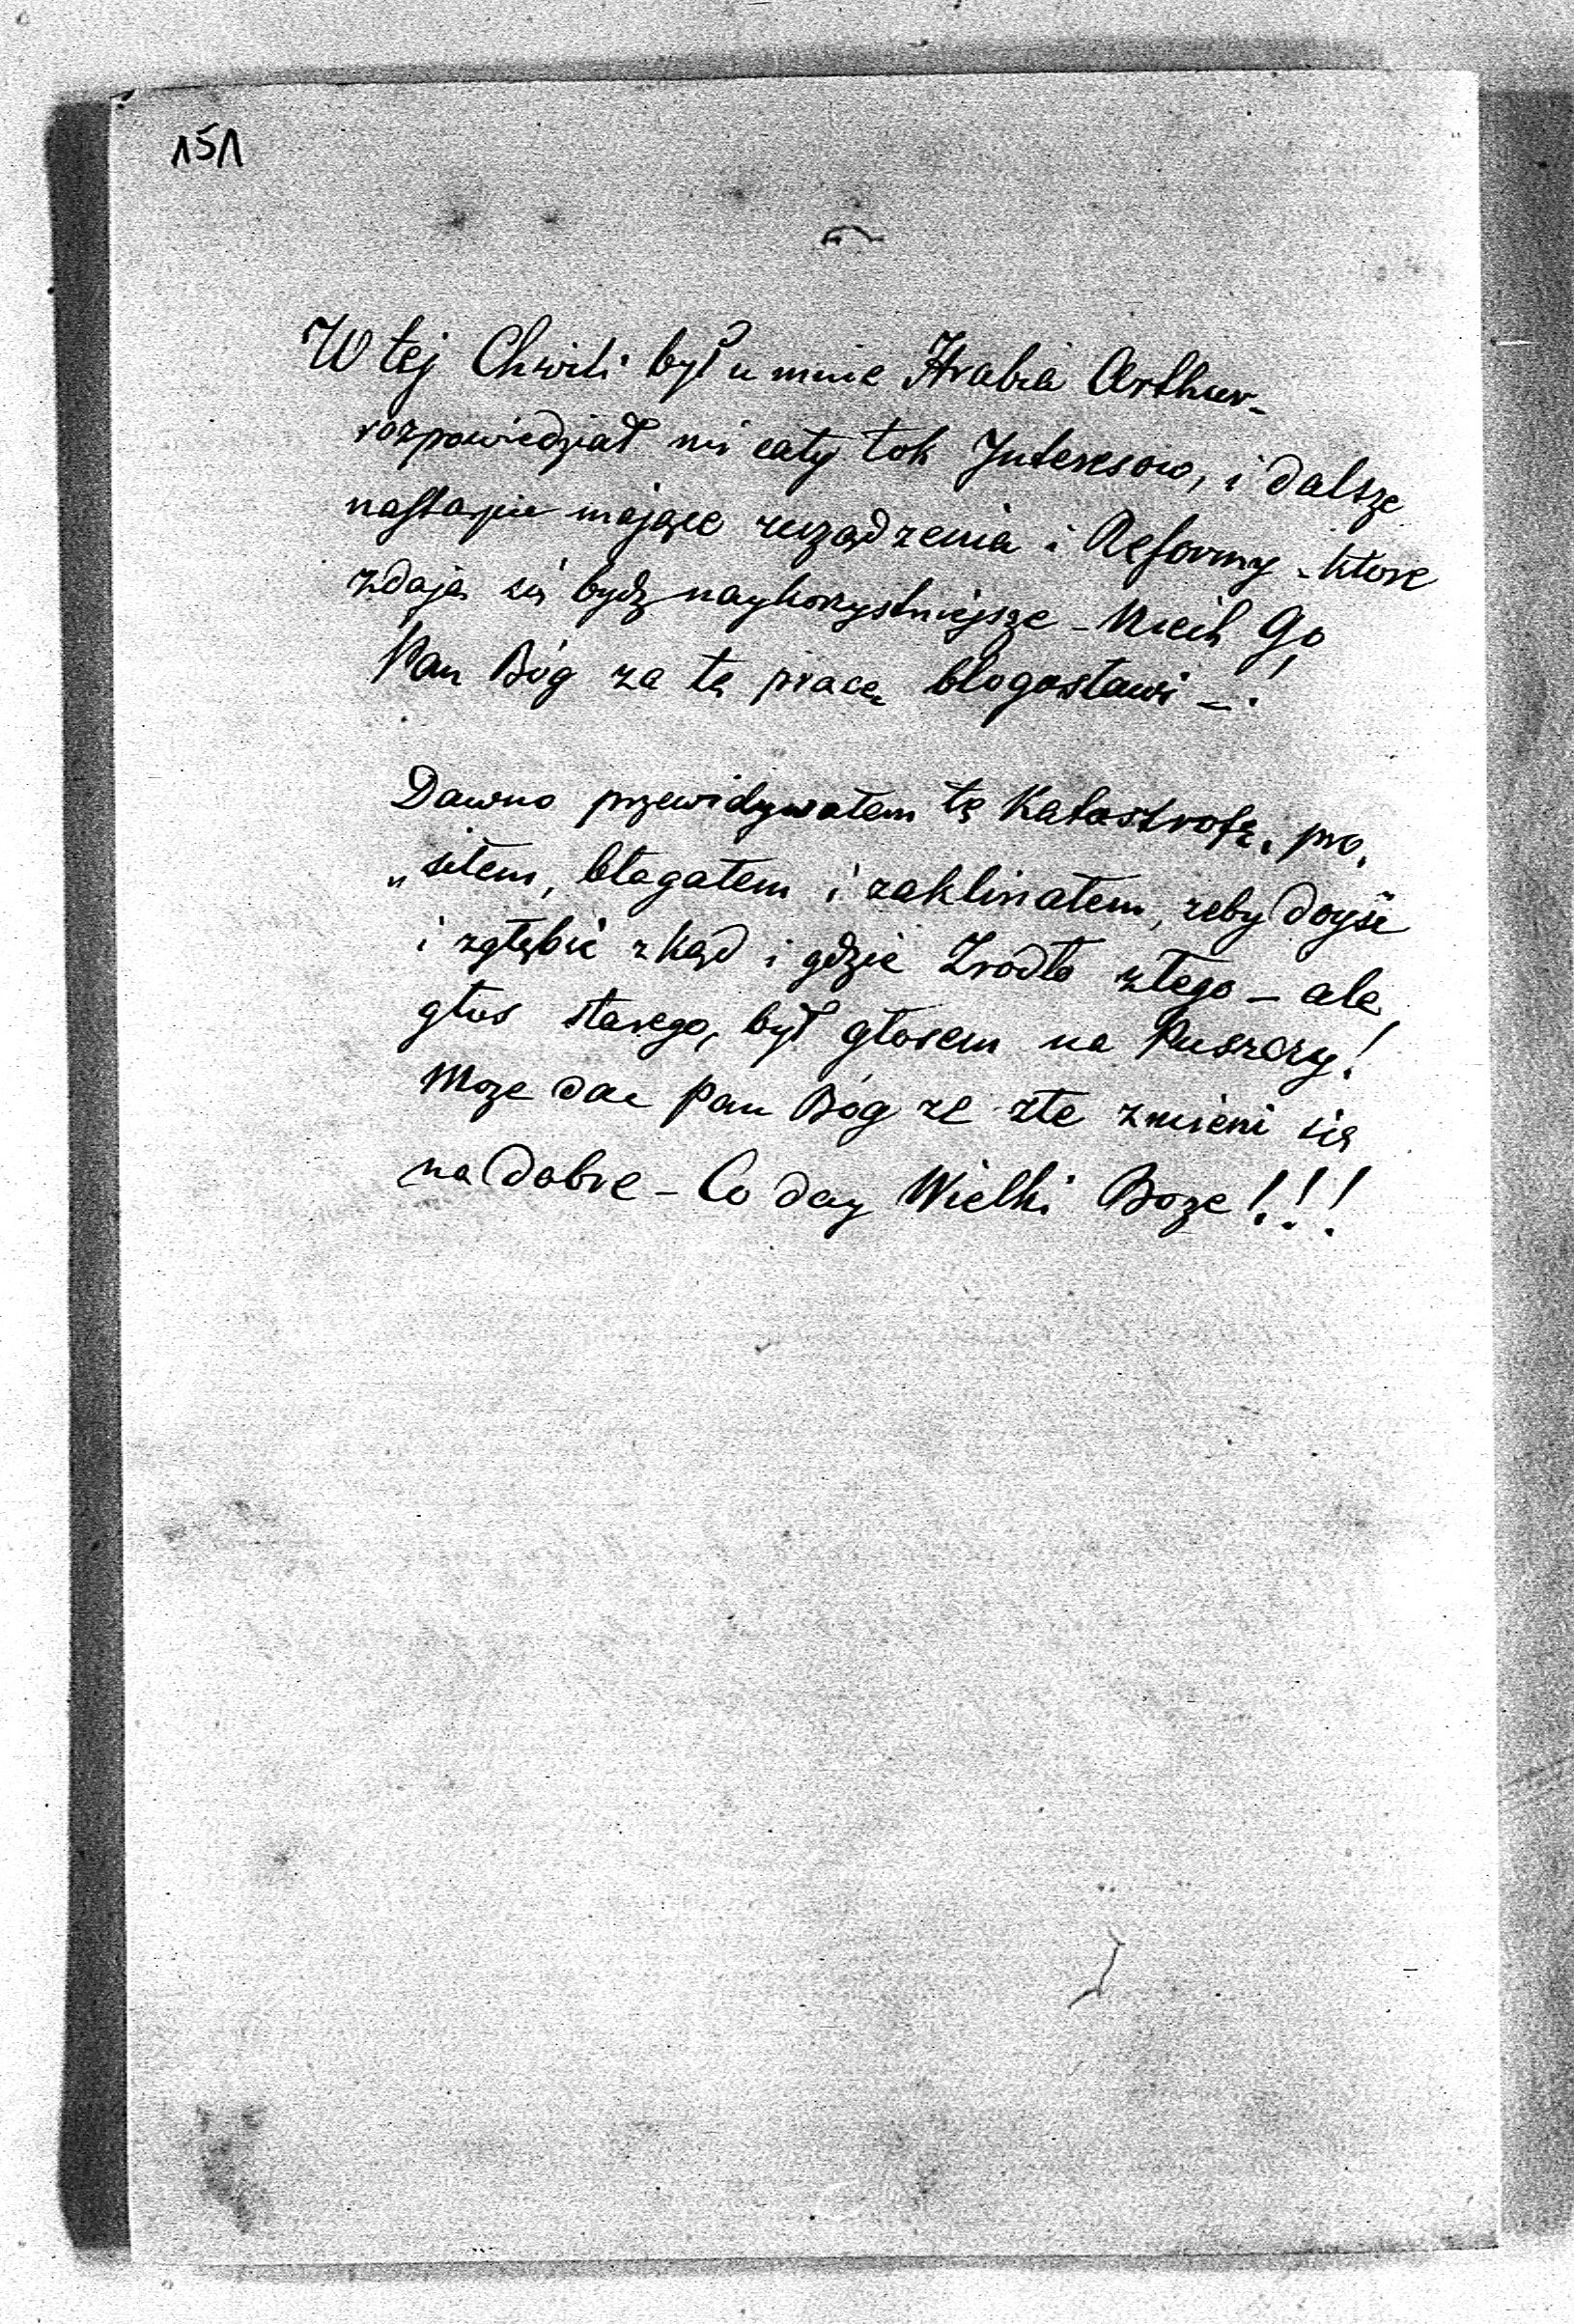 151
W tej Chwili był u mnie Hrabia Arthur-
rozpowiedział mi cały tok Jnteresow, i dalsze
nastąpic mające urządzenia i Reformy - ktore
zdają się bydz naykorzystniejsze - Niech Go
Pan Bóg za tę pracę błogosławi - !
Dawno przewidywałem tę Katastrofę, pro,
„siłem, błagałem i zaklinałem, zeby doyść
i zgłębić zkąd i gdzie Zrodło złego - ale
głos starego, był głosem na Puszczy!
Moze da c Pan Bóg ze złe zmieni się
na dobre - Co day Wielki Boze!!!